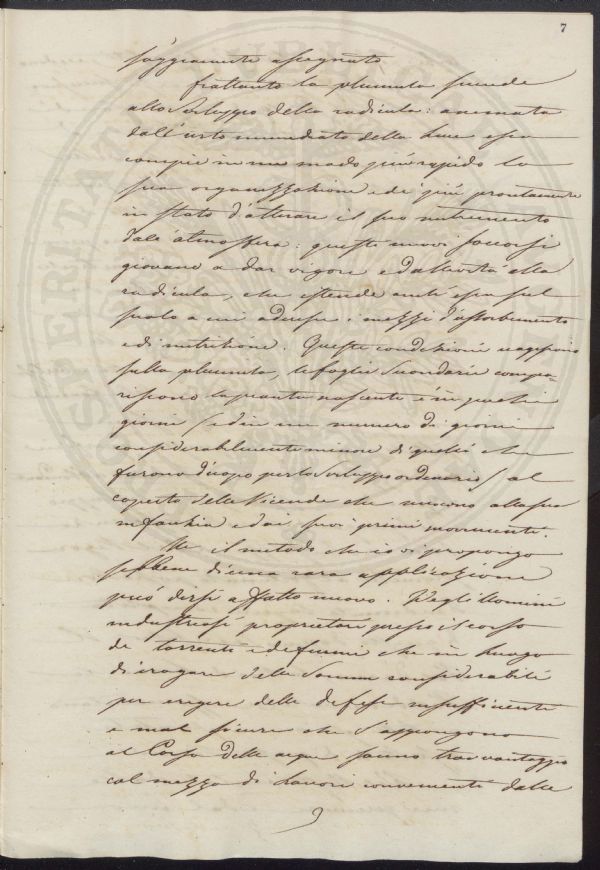 7
saggiamente assegnato.
Frattanto la plumula precede
allo sviluppo della radicula: animata
dall'urto immediato della luce essa
compie in un modo più rapido la
sua organizzazione ed è più prontamente
in stato d'attirare il suo nutrimento
dall'atmosfera: questi nuovi soccorsi
giovano a dar vigore ed attività alla
radicula, che estende anch'essa sul
suolo a cui aderisce i mezzi d'assorbimento
e di nutrizione. Queste condizioni reagiscono
sulla plumula, le foglie secondarie compa-
riscono la pianta nascente è in pochi
giorni (ed in un numero di giorni
considerabilmente minore di quelli che
furono d'uopo per lo sviluppo ordinario) al
coperto delle vicende che nuocono alla sua
infanzia e dai suoi primi movimenti.
Ne il metodo che io vi propongo
sebbene di una rara applicazione
può dirsi affatto nuovo. Degli Uomini
industriosi proprietari presso il corso
de' torrenti e de' fiumi che in luogo
di erogare delle somme considerabili
per erigere delle difese insufficienti
e mal sicure che s'appongono
al Corso delle acque sanno trar vantaggio
col mezzo di lavori convenienti dalle